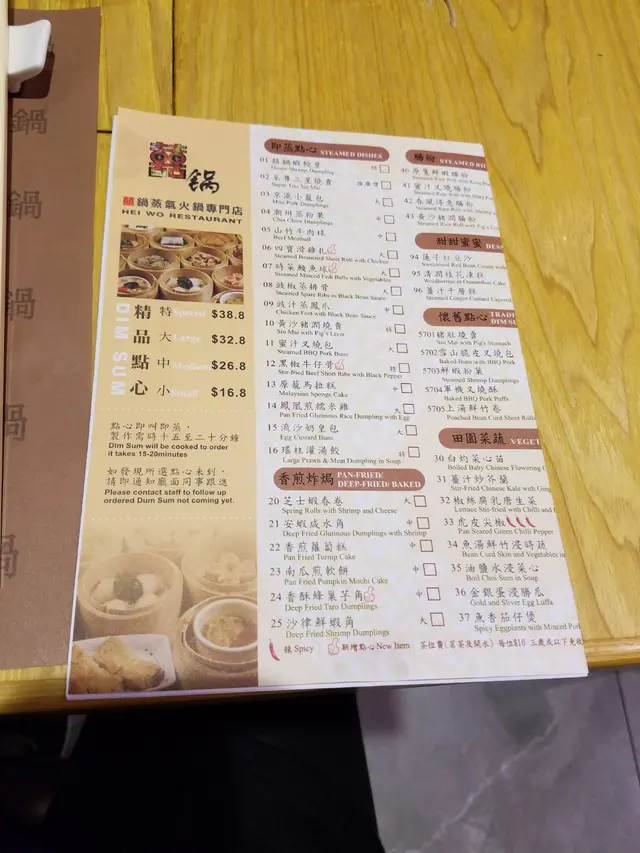 鍋
囍鍋蒸氣火鍋專門店
HEI WO RESTAURANT
DIM SUM
精品點心
特 Special $38.8
大 Large $32.8
中 Medium $26.8
小 Small $16.8
點心即叫即蒸，
製作需時十五至二十分鐘
Dim Sum will be cooked to order
it takes 15-20minutes
如發現所選點心未到，
請即通知廳面同事跟進
Please contact staff to follow up
ordered Dum Sum not coming yet.
即蒸點心 STEAMED DISHES
01 囍鍋蝦餃皇 特
House Shrimp Dumpling
02 至尊三星燒賣 推廣價
Super Trio Siu Mai
03 京滬小籠包 大
Mini Pork Dumplings
04 潮州蒸粉果 中
Chiu Chow Dumplings
05 山竹牛肉球 中
Beef Meatball
06 四寶滑雞扎 大
Steamed Beancurd Sheet Roll with Chicken
07 時菜鯪魚球 大
Steamed Minced Fish Balls with Vegetables
08 豉椒蒸排骨 大
Steamed Spare Ribs in Black Bean Sauce
09 豉汁蒸鳳爪 中
Chicken Feet with Black Bean Sauce
10 黃沙豬潤燒賣 特
Siu Mai with Pig's Liver
11 蜜汁叉燒包 大
Steamed BBQ Pork Buns
12 黑椒牛仔骨 特
Stir-fried Beef Short Ribs with Black Pepper
13 原籠馬拉糕 中
Malaysian Sponge Cake
14 鳳凰煎糯米雞 大
Pan Fried Glutinous Rice Dumpling with Egg
15 流沙奶皇包 大
Egg Custard Buns
16 瑤柱灌湯餃 特
Large Prawn & Meat Dumpling in Soup
香煎炸焗 PAN-FRIED/
DEEP-FRIED/ BAKED
20 芝士蝦春卷 大
Spring Rolls with Shrimp and Cheese
21 安蝦咸水角 中
Deep Fried Glutinous Dumplings with Shrimp
22 香煎蘿蔔糕 中
Pan Fried Turnip Cake
23 南瓜煎軟餅 中
Pan Fried Pumpkin Mochi Cake
24 香酥蜂巢芋角 中
Deep Fried Taro Dumplings
25 沙律鮮蝦角 大
Deep Fried Shrimp Dumplings
辣 Spicy 新增點心 New Item 茶位費(茗茶及開水) 每位$10 三歲或以下免收
腸粉 STEAMED
40 原隻鮮蝦腸粉
41 蜜汁叉燒腸粉
42 春風得意腸粉
43 黃沙豬潤腸粉
甜甜蜜蜜
94 蓮子紅豆沙
95 清潤桂花凍糕
96 薑汁千層糕
懷舊點心
DIM SUM
5701 豬肚燒賣
Siu Mai with Pig's Stomach
5702 雪山脆皮叉燒包
Baked Buns with BBQ Pork
5703 鮮蝦粉菓
Steamed Shrimp Dumplings
5704 軍機叉燒酥
Baked BBQ Pork Puffs
5705 上湯鮮竹卷
Poached Bean Curd Sheet Rolls
田園菜蔬
30 白灼菜心苗
Boiled Baby Chinese Flowering
31 薑汁炒芥蘭
Stir-Fried Chinese Kale with
32 椒絲腐乳唐生菜
Lettuce Stir-fried with Chilli and
33 虎皮尖椒
Pan Seared Green Chilli Pepper
34 魚湯鮮竹浸時蔬
Bean Curd Skin and Vegetables in
35 油鹽水浸菜心
Boil Choi Sum in Soup
36 金銀蛋浸勝瓜
Gold and Sliver Egg Luffa
37 魚香茄仔煲
Spicy Eggplants with Minced Pork
鍋
鍋
鍋
鍋
鍋